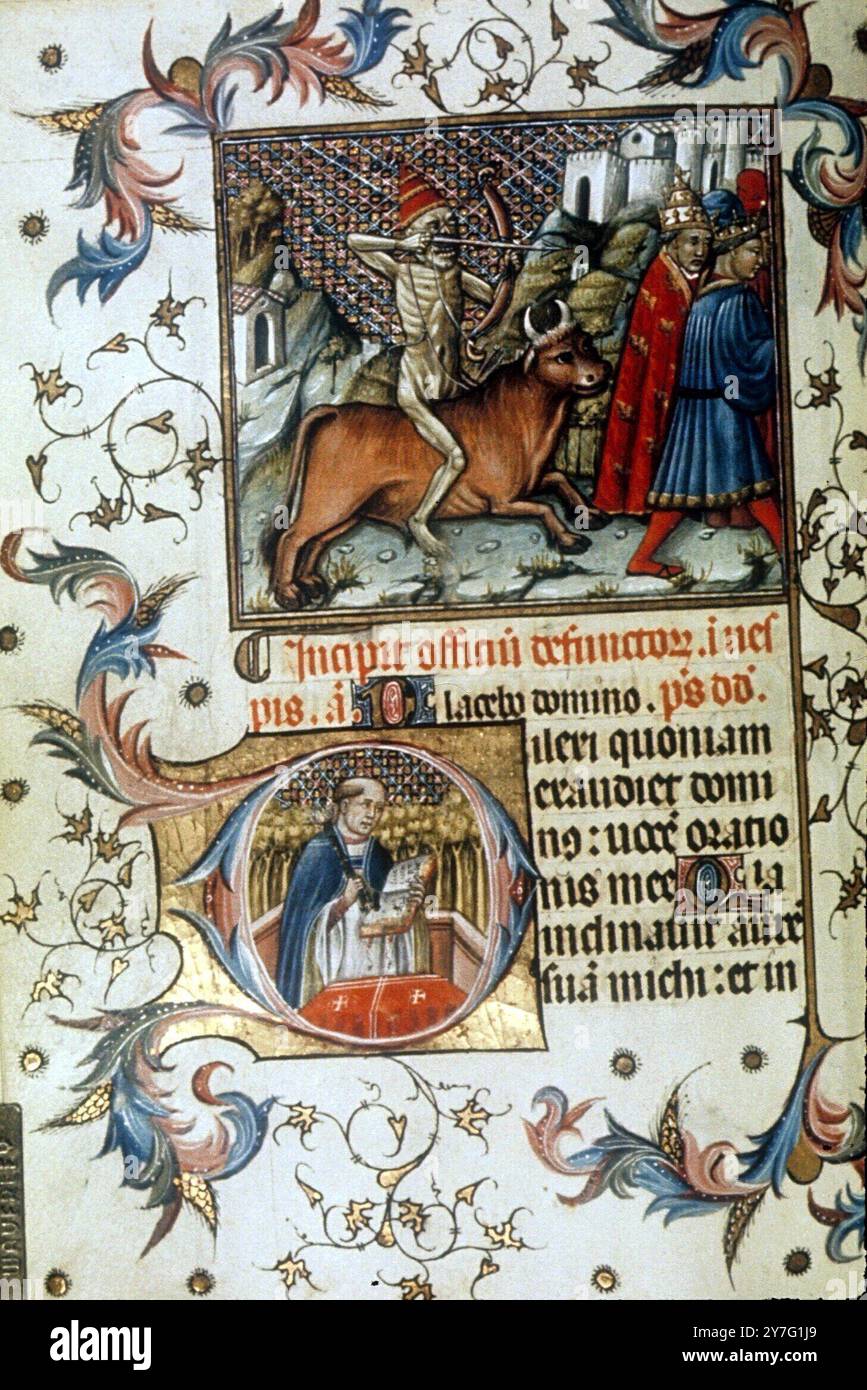 Incipit officiū defunctoꝝ. i ves
pis. añ. Placebo domino. p̄s dd̄.
ilexi quoniam
exaudiet domi
nꝰ: uocē oratio
nis mee Quia
inclinauit aurē
suā michi: et in
alamy
Image ID: 2Y7G1J9
www.alamy.com